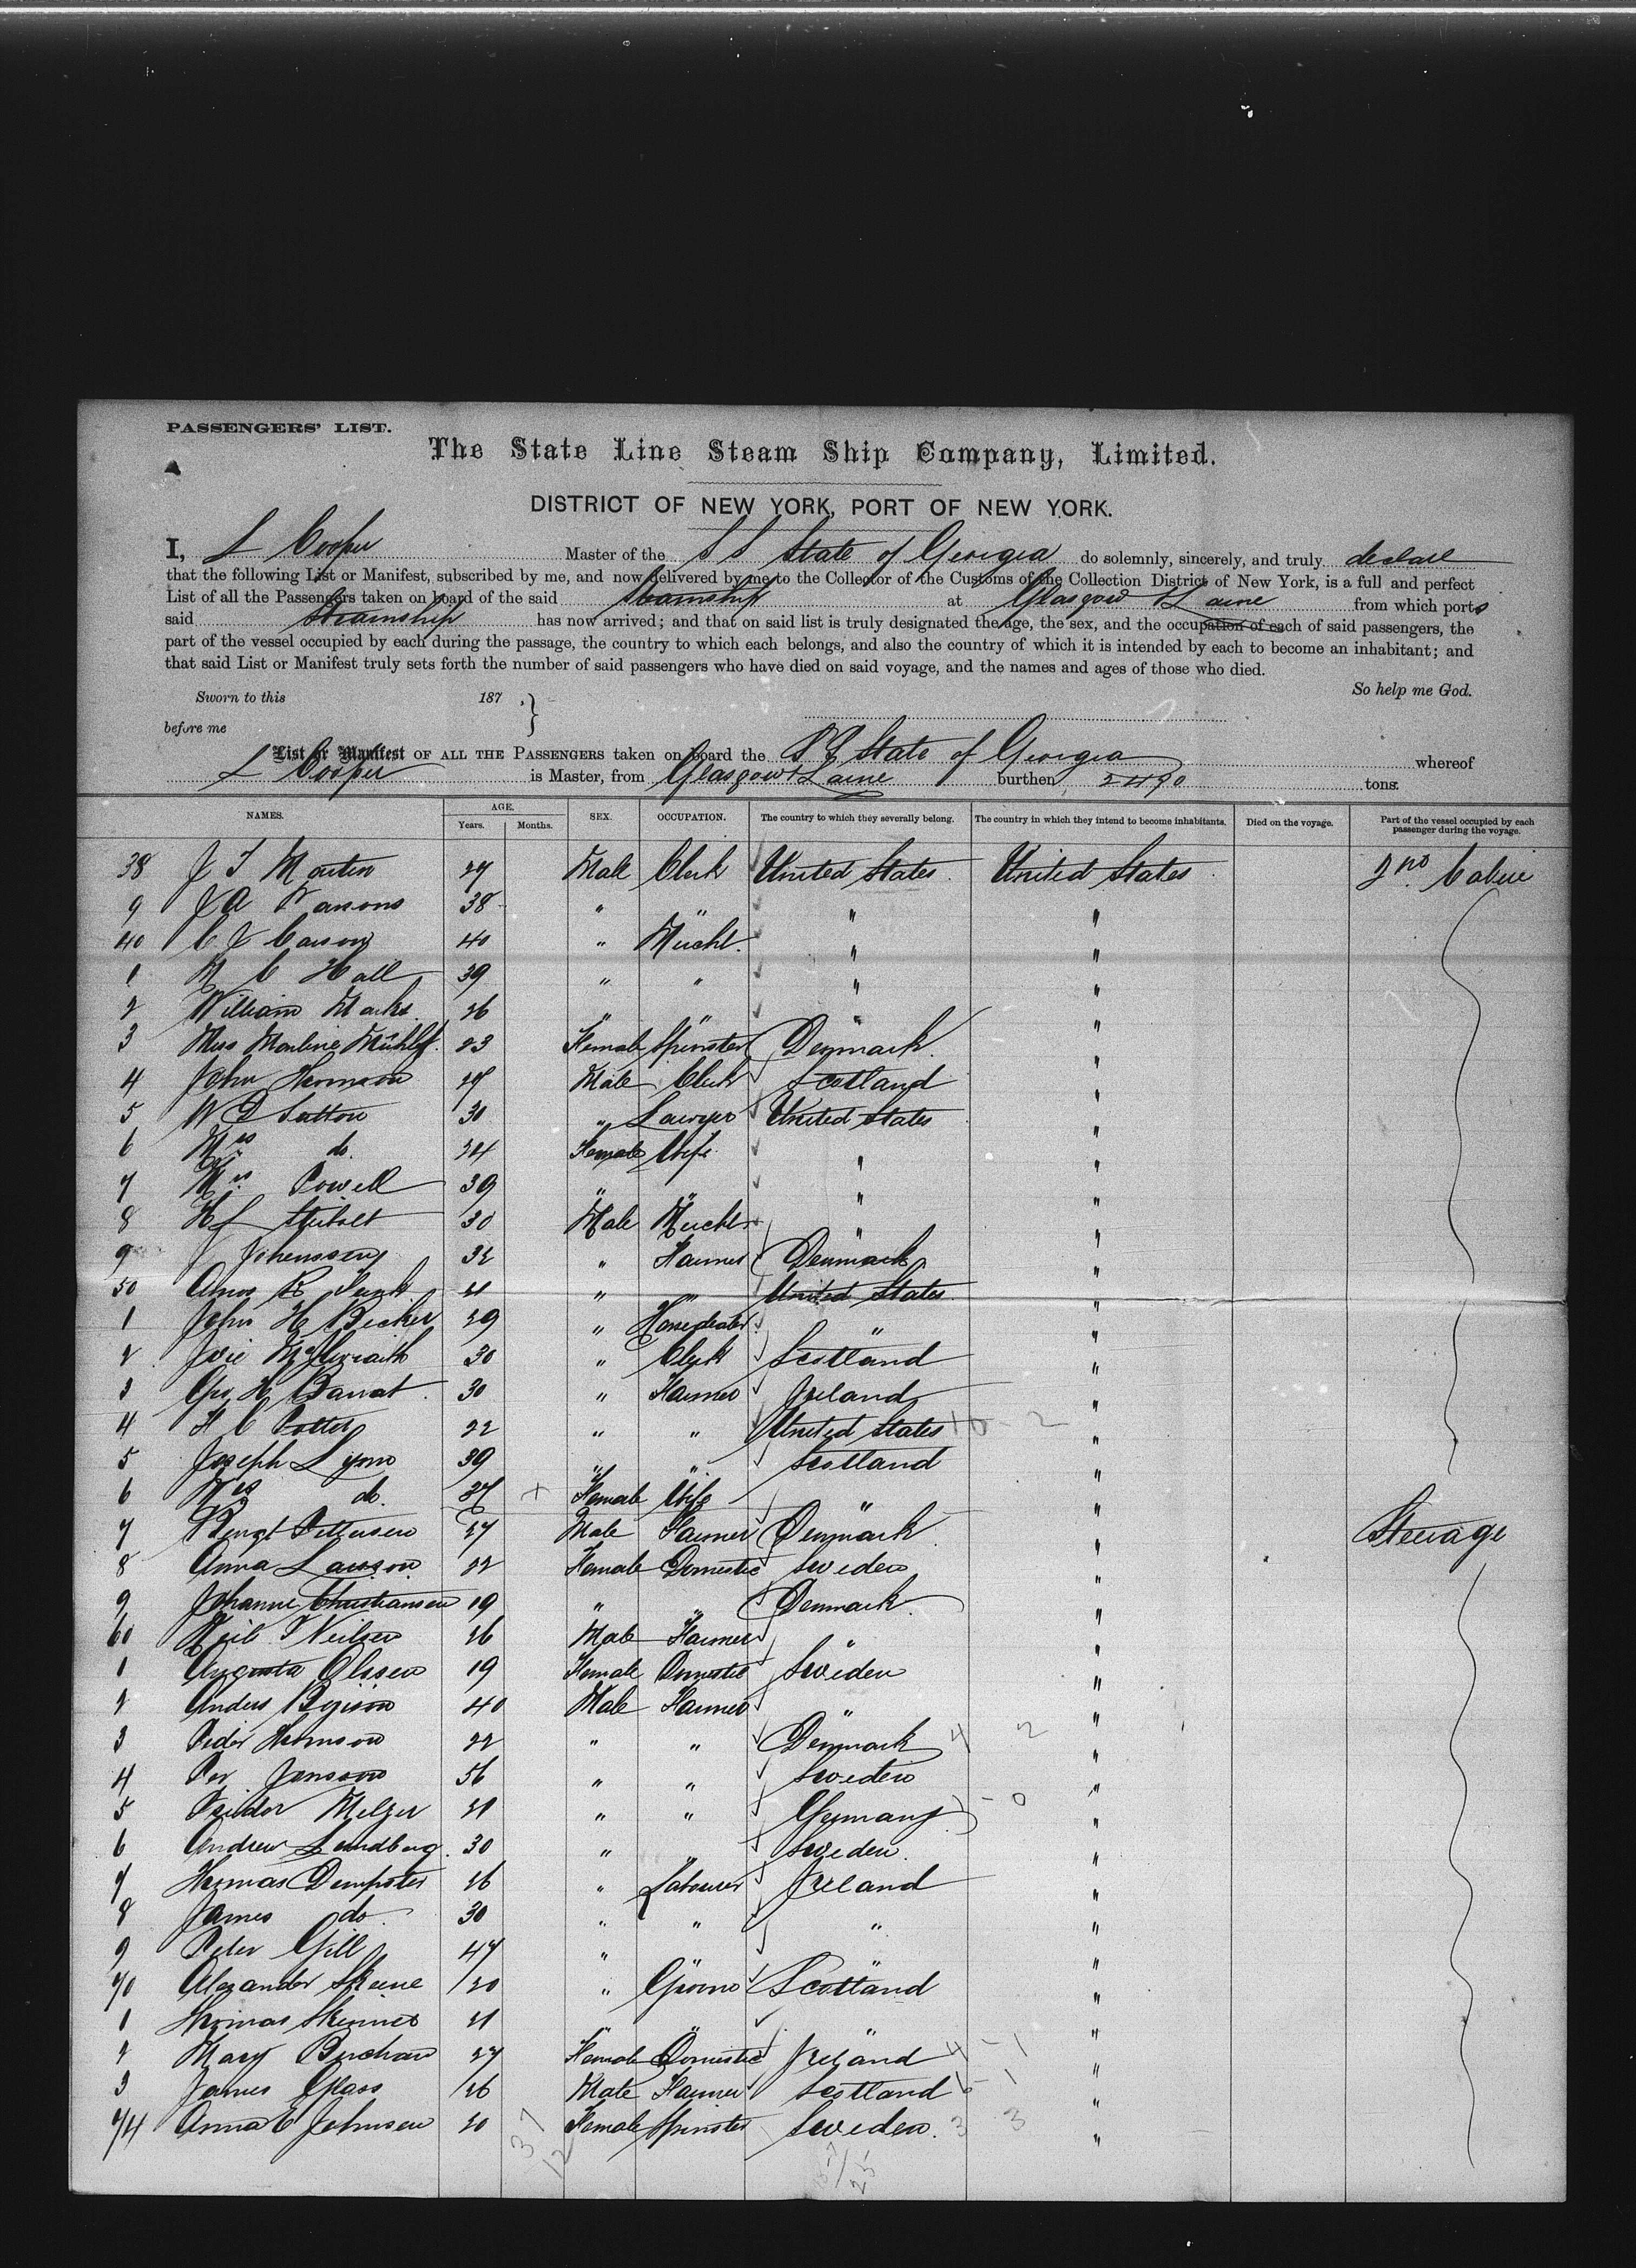 PASSENGERS' LIST.
The State Line Steam Ship Company, Limited.
DISTRICT OF NEW YORK, PORT OF NEW YORK.
I, L Cooper Master of the SS State of Georgia do solemnly, sincerely, and truly declare
that the following List or Manifest, subscribed by me, and now delivered by me to the Collector of the Customs of the Collection District of New York, is a full and perfect
List of all the Passengers taken on board of the said Steamship at Glasgow & Larne from which ports
said Steamship has now arrived; and that on said list is truly designated the age, the sex, and the occupation of each of said passengers, the
part of the vessel occupied by each during the passage, the country to which each belongs, and also the country of which it is intended by each to become an inhabitant; and
that said List or Manifest truly sets forth the number of said passengers who have died on said voyage, and the names and ages of those who died.
Sworn to this 187 . } So help me God.
before me
List or Manifest OF ALL THE PASSENGERS taken on board the SS State of Georgia whereof
L Cooper is Master, from Glasgow & Larne burthen 2490 tons.
NAMES. AGE. Years. Months. SEX. OCCUPATION. The country to which they severally belong. The country in which they intend to become inhabitants. Died on the voyage. Part of the vessel occupied by each passenger during the voyage.
38 J T Martin 27 Male Clerk United States United States 2nd Cabin
9 J A Parsons 38 " " " "
40 C J Carson 40 " Mercht. " "
1 R C Hall 39 " " " "
2 William Marks 26 " " " "
3 Miss 23 Female Spinster Denmark "
4 John 27 Male Clerk Scotland "
5 W D Sutton 30 " Lawyer United States "
6 Mrs do. 24 Female Wife " "
7 Mrs. Powell 39 " " " "
8 30 Male Mercht " "
9 J 32 " Farmer Denmark "
50 Amos R Funk 21 " " United States "
1 John H Becker 29 " Horsedealer " "
2 30 " Clerk Scotland "
3 Geo H Barrat 30 " Farmer Ireland "
4 H C Potter 22 " " United States "
5 Joseph Lyons 39 " " Scotland "
6 Mrs do. 37 Female Wife " "
7 Bengt Pettersen 27 Male Farmer Denmark " Steerage
8 Anna Larsson 22 Female Domestic Sweden "
9 Johanne Christiansen 19 " " Denmark "
60 Neilsen 26 Male Farmer " "
1 Augusta Olssen 19 Female Domestic Sweden "
2 Anders 40 Male Farmer " "
3 Peder 22 " " Denmark "
4 Per Jonsson 56 " " Sweden "
5 Isidor Melzer 21 " " Germany "
6 Andrew Lundberg 30 " " Sweden "
7 Thomas Dempster 26 " Labourer Ireland "
8 James do. 30 " " " "
9 Peter Gill 47 " " " "
70 Alexander Skene 20 " Groom Scotland "
1 Thomas Skinner 21 " " " "
2 Mary Buchan 27 Female Domestic Ireland "
3 James Glass 26 Male Farmer Scotland "
74 Anna C Johnsen 20 Female Spinster Sweden. "